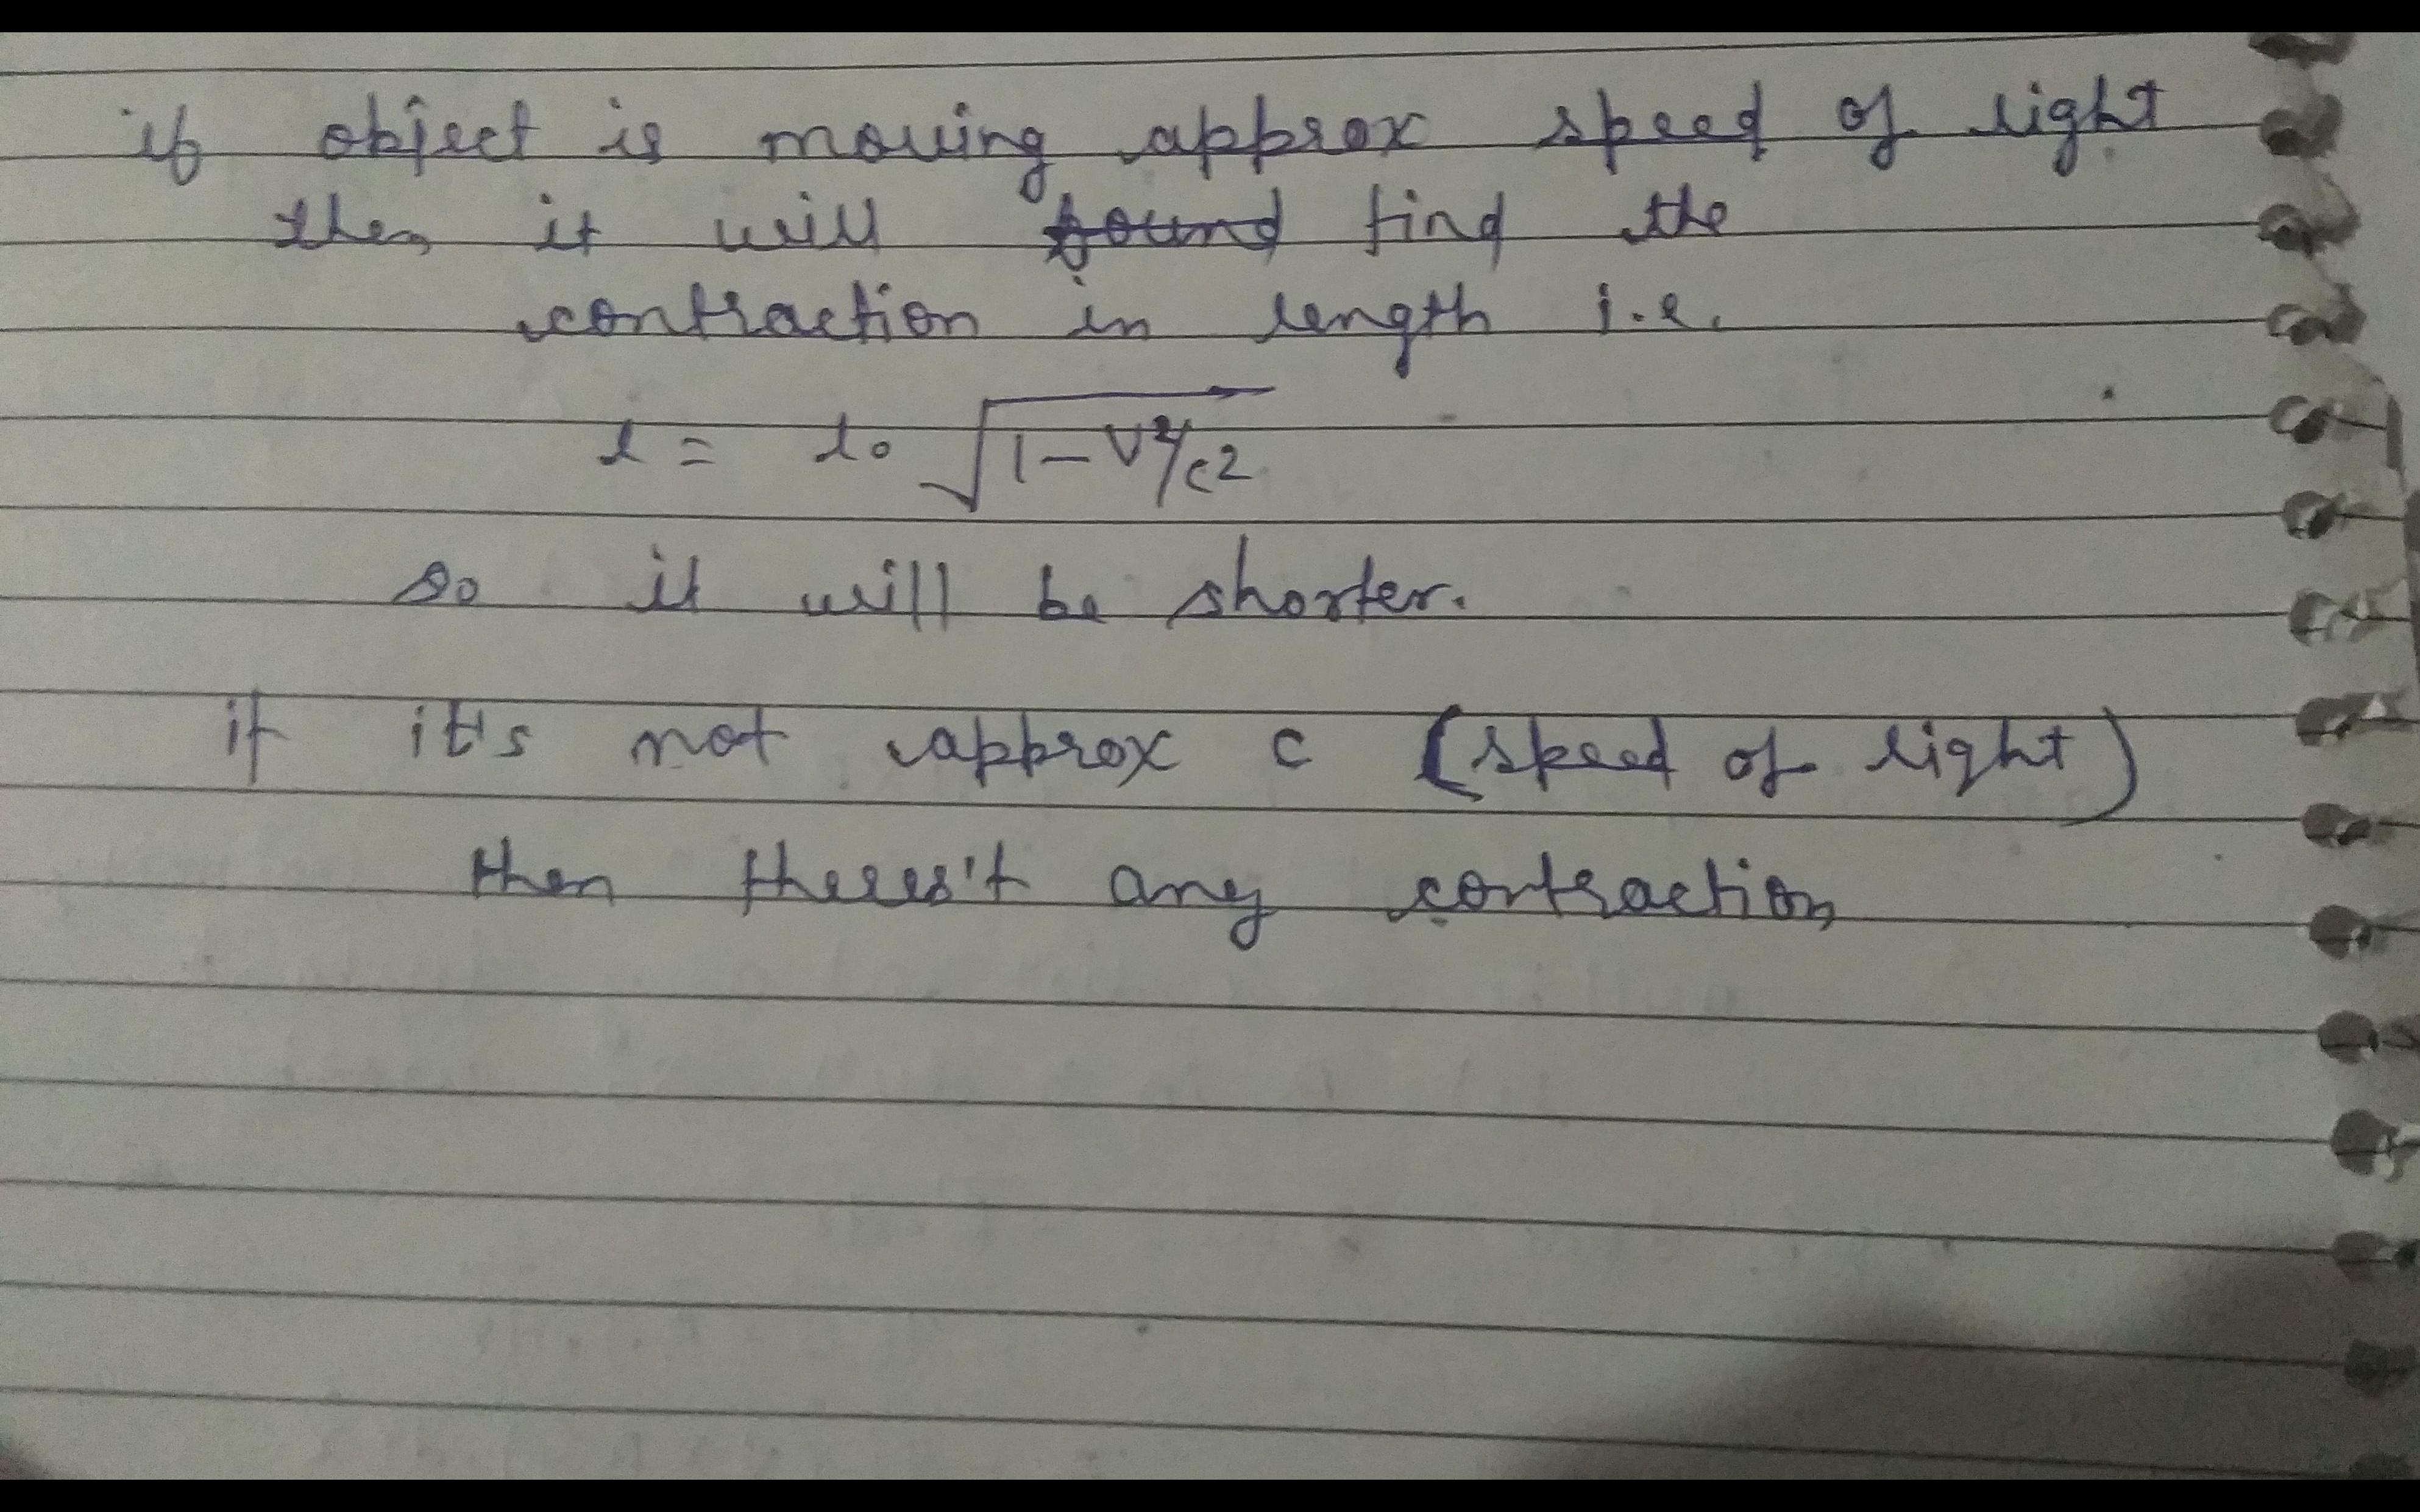 if object is moving approx speed of light
then it will found find the
contraction in length i.e.
l = l₀ √1-V²/c2
so it will be shorter.
if it's not approx c (speed of light)
then theres't any contraction